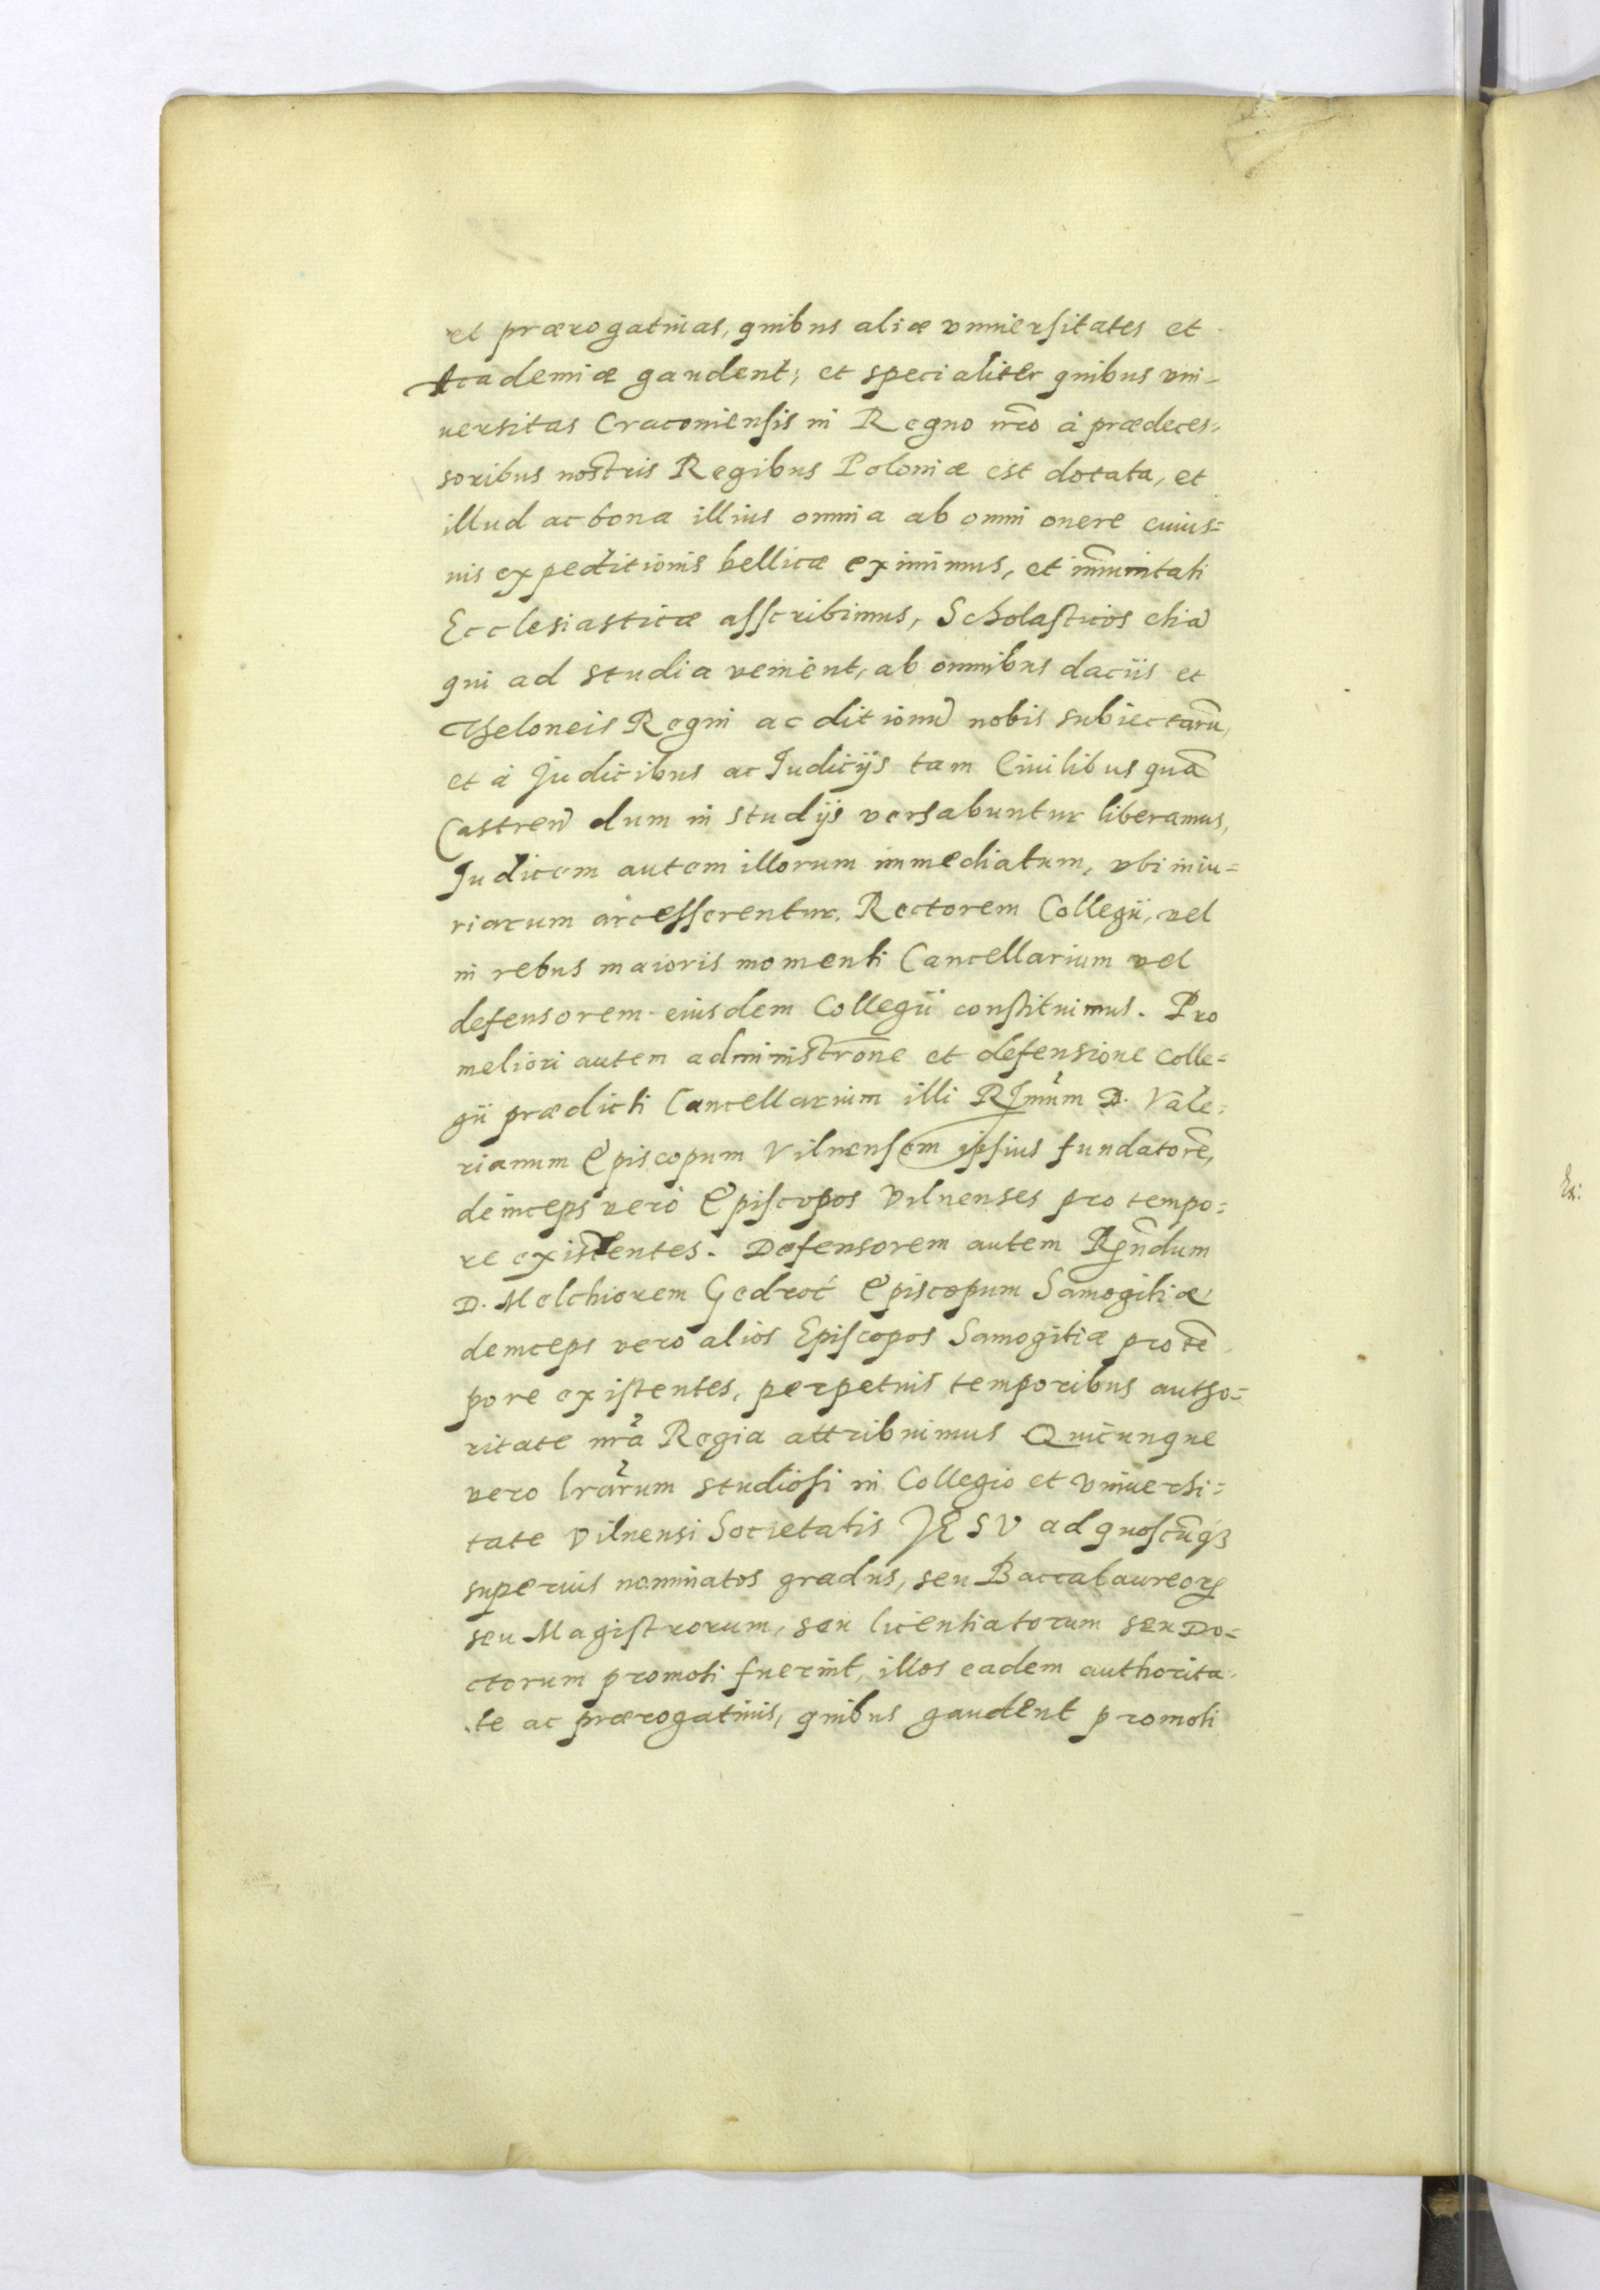 et prærogatiuas, quibus aliæ vniuersitates et
Academiæ gaudent; et specialiter quibus vni-
uersitas Cracouiensis in Regno nr̃o à prædeces-
soribus nostris Regibus Poloniæ est dotata, et
illud ac bona illius omnia ab omni onere cuius=
uis expeditionis bellicæ eximimus, et im̃unitati
Ecclesiasticæ asscribimus, Scholasticos etiã
qui ad studia venient, ab omnibus daciis et
Theloneis Regni ac ditionũ nobis subiectarũ,
et à Judicibus ac Iudicijs tam Ciuilibus quã
Castreñ dum in studijs versabuntur liberamus,
Iudicem autem illorum immediatum, vbi iniu=
riarum arcesserentur, Rectorem Collegii, vel
in rebus maioris momenti Cancellarium vel
defensorem eiusdem Collegii constituimus. Pro
meliori autem administrõne et defensione Colle=
gii prædicti Cancellarium illi R̃mum D. Vale=
rianum Episcopum Vilnensem ipsius fundatorẽ,
deinceps verò Episcopos Vilnenses pro tempo=
re existentes. Defensorem autem Rñdum
D. Melchiorem Gedroć Episcopum Samogitiæ
deinceps vero alios Episcopos Samogitiæ pro tẽ
pore existentes, perpetuis temporibus autho=
ritate nr̃a Regia attribuimus Quicunque
vero lr̃arum studiosi in Collegio et Vniuersi=
tate Vilnensi Societatis JESV ad quoscũq3
superius nominatos gradus, seu Baccalaureorꝝ
seu Magistrorum, seu licentiatorum seu Do=
ctorum promoti fuerint, illos eadem authorita-
te ac prærogatiuis, quibus gaudent promoti
Ex: